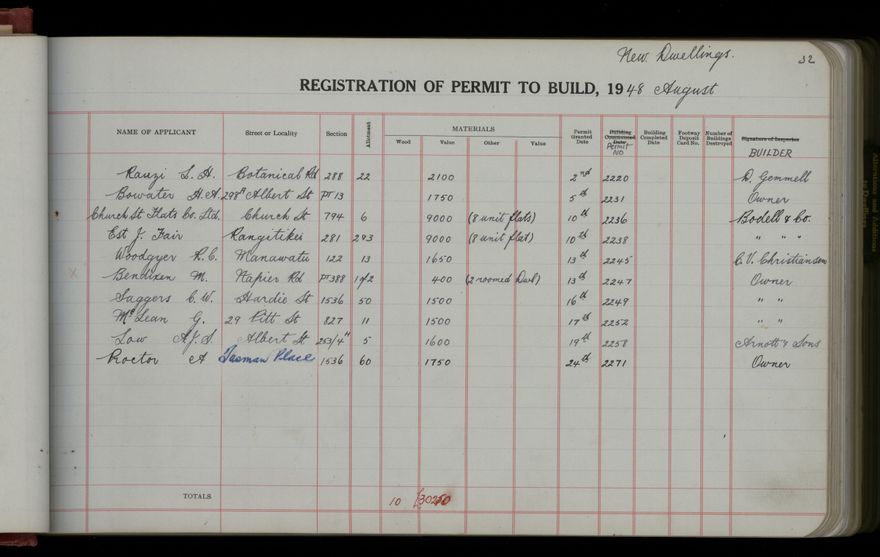 New Dwellings. 32
REGISTRATION OF PERMIT TO BUILD, 1948 August
NAME OF APPLICANT Street or Locality Section Allotment MATERIALS Wood Value Other Value Permit Granted Date Building Commenced Date Permit NO Building Completed Date Footway Deposit Card No. Number of Buildings Destroyed Signature of Inspector BUILDER
L. H. Botanical Rd 288 22 2100 2nd 2220 D. Gemmell
Bowater H. A. 298A Albert St PT 13 1750 5th 2231 Owner
Church St Flats Co. Ltd. Church St 794 6 9000 (8 unit flats) 10th 2236 Bodell & Co.
Est J. Fair Rangitikei 281 293 9000 (8 unit flat) 10th 2238 " " "
Woodgyer R. C. Manawatu 122 13 1650 13th 2245 C. V. Christiansen
x Bendixen M. Napier Rd PT 388 1 of 2 400 (2 roomed Dwel) 13th 2247 Owner
Saggers C. W. Hardie St 1536 50 1500 16th 2249 " "
McLean G. 29 Pitt St 827 11 1500 17th 2252 " "
Law A. J. S. Albert St 253/4 5 1600 19th 2258 Arnott & Sons
Proctor A Tasman Place 1536 60 1750 24th 2271 Owner
TOTALS 10 £30250
Alterations and Additions to Dwellings